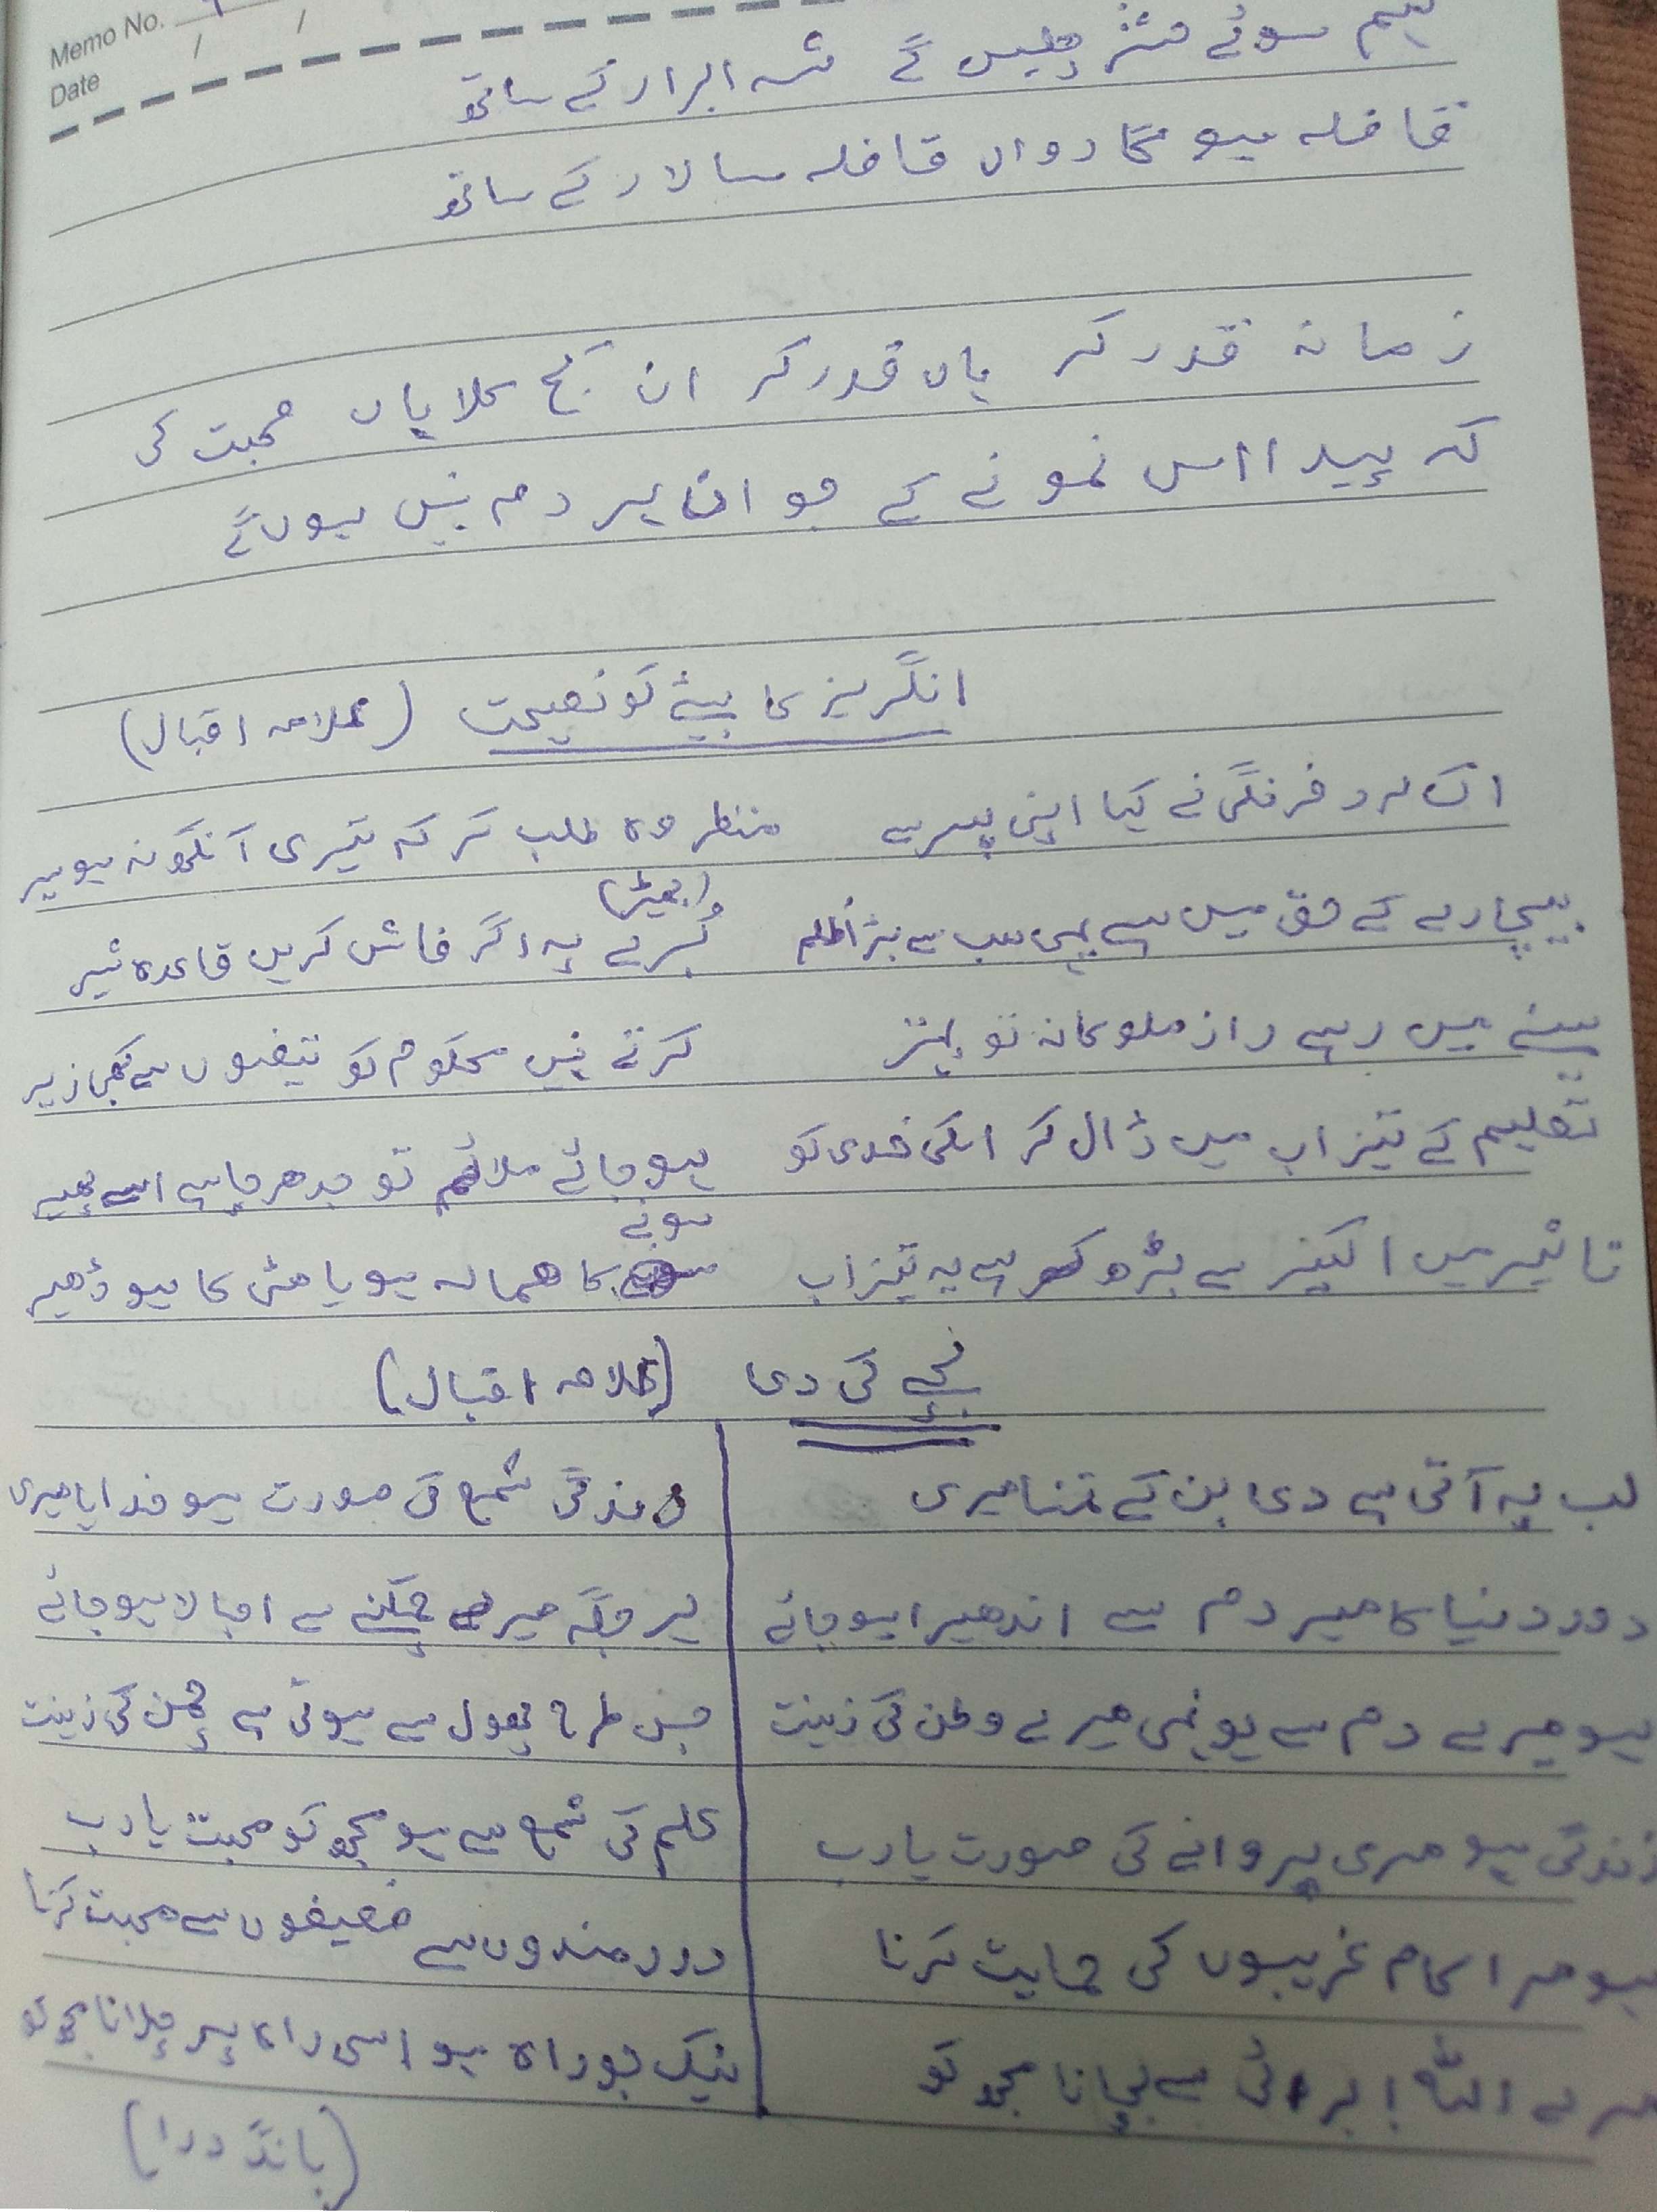 Memo No.
Date
ہم سوئے حشر چلیں گے شہ ابرار کے ساتھ
قافلہ ہو گا رواں قافلہ سالار کے ساتھ
زمانہ قدر کر ہاں قدر کر ان کج کلاہاں محبت کی
کہ پیدا اس نمونے کے جواں ہر دم نہیں ہوں گے
انگریز کا بیٹے کو نصیحت (علامہ اقبال)
اک لرد فرنگی نے کہا اپنی پسر سے منظر وہ طلب کر کہ تیری آنکھ نہ ہو سیر
(بھیڑ)
بیچارے کے حق میں ہے یہی سب سے بڑا ظلم بُرے پہ اگر فاش کریں قاعدہ شیر
سینے میں رہے راز ملوکانہ تو بہتر کرتے نہیں محکوم کو تیغوں سے کبھی زیر
تعلیم کے تیزاب میں ڈال کر اسکی خودی کو ہو جائے ملائم تو جدھر چاہے اسے پھیر
سونے
تاثیر میں اکسیر سے بڑھ کر ہے یہ تیزاب کا ہمالہ ہو یا مٹی کا ہو ڈھیر
بچے کی دعا (علامہ اقبال)
لب پہ آتی ہے دعا بن کے تمنا میری زندگی شمع کی صورت ہو خدایا میری
دور دنیا کا میر دم سے اندھیرا ہو جائے ہر جگہ میرے چمکنے سے اجالا ہو جائے
ہو میرے دم سے یونہی میرے وطن کی زینت جس طرح پھول سے ہوتی ہے چمن کی زینت
زندگی ہو مری پروانے کی صورت یارب علم کی شمع سے ہو مجھ کو محبت یارب
ہو مرا کام غریبوں کی حمایت کرنا دردمندوں سے ضعیفوں سے محبت کرنا
مرے اللہ! برائی سے بچانا مجھ کو نیک جو راہ ہو اسی راہ پر چلانا مجھ کو
(بانگ درا)